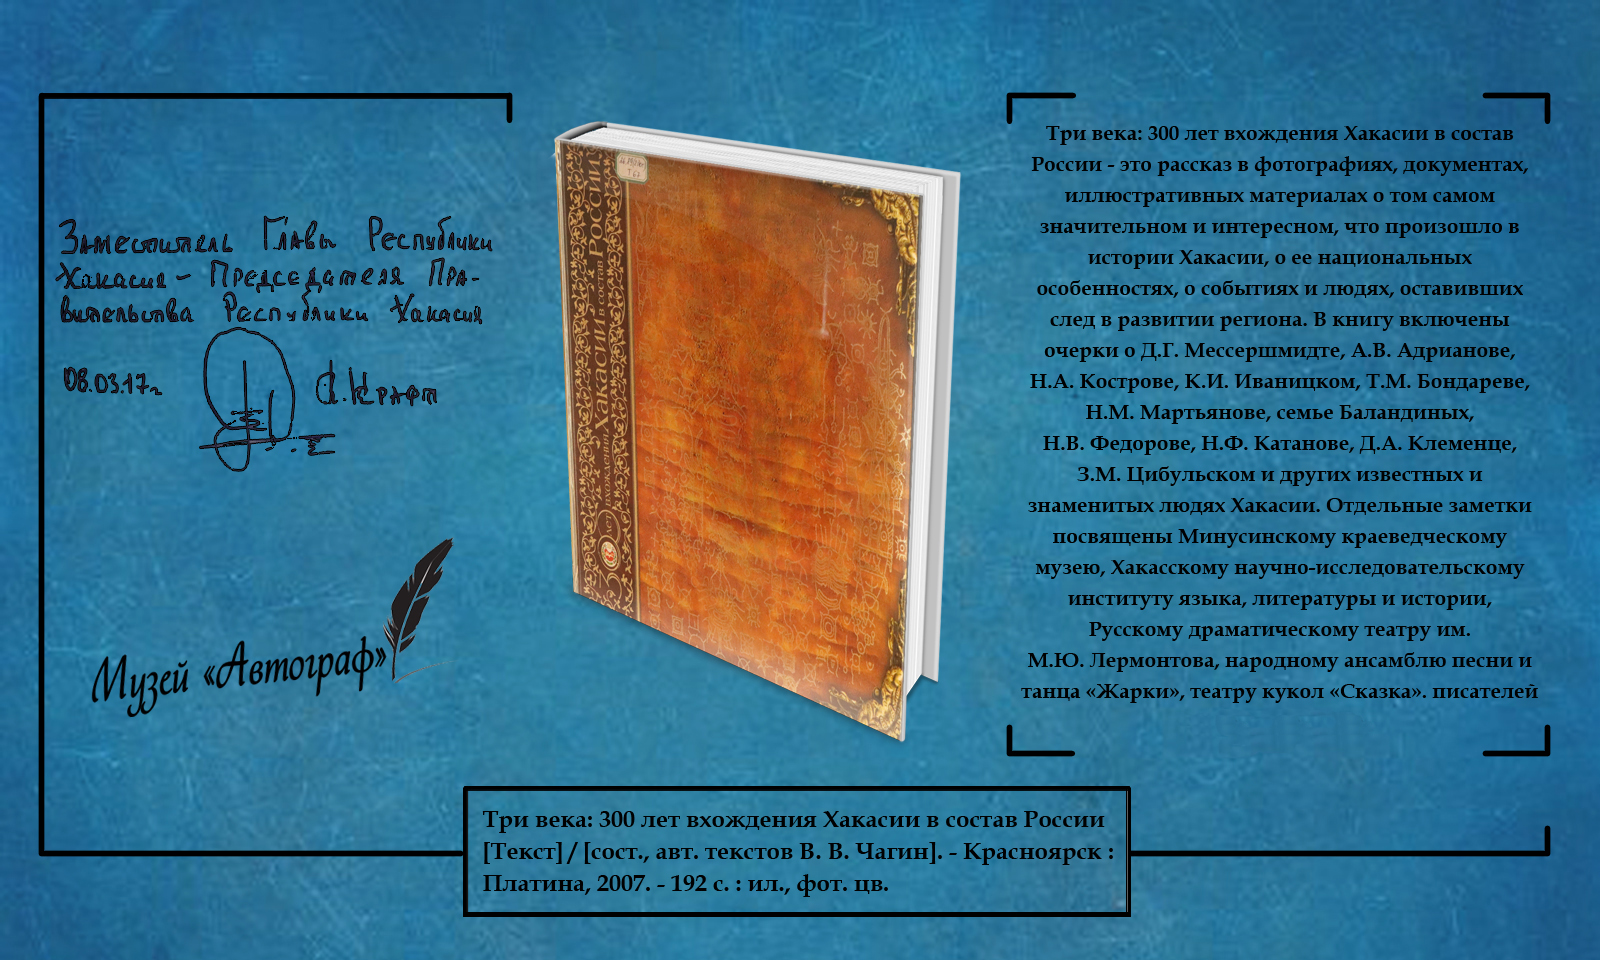 Заместитель Главы Республики
Хакасия – Председателя Пра-
вительства Республики Хакасия
08.03.17г
Крафт
Музей «Автограф»
300 лет вхождения Хакасии в состав России
Три века: 300 лет вхождения Хакасии в состав
России - это рассказ в фотографиях, документах,
иллюстративных материалах о том самом
значительном и интересном, что произошло в
истории Хакасии, о ее национальных
особенностях, о событиях и людях, оставивших
след в развитии региона. В книгу включены
очерки о Д.Г. Мессершмидте, А.В. Адрианове,
Н.А. Кострове, К.И. Иваницком, Т.М. Бондареве,
Н.М. Мартьянове, семье Баландиных,
Н.В. Федорове, Н.Ф. Катанове, Д.А. Клеменце,
З.М. Цибульском и других известных и
знаменитых людях Хакасии. Отдельные заметки
посвящены Минусинскому краеведческому
музею, Хакасскому научно-исследовательскому
институту языка, литературы и истории,
Русскому драматическому театру им.
М.Ю. Лермонтова, народному ансамблю песни и
танца «Жарки», театру кукол «Сказка». писателей
Три века: 300 лет вхождения Хакасии в состав России
[Текст] / [сост., авт. текстов В. В. Чагин]. - Красноярск :
Платина, 2007. - 192 с. : ил., фот. цв.